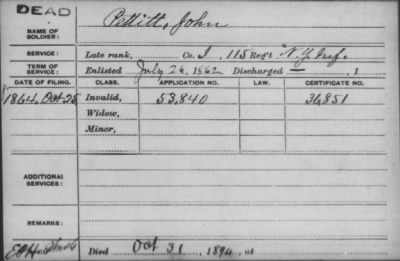 DEAD
NAME OF SOLDIER: Pettitt, John
SERVICE: Late rank, Co. I, 115 Reg't N.Y. Inf.
TERM OF SERVICE: Enlisted July 26, 1862 Discharged — , 1
DATE OF FILING. CLASS. APPLICATION NO. LAW. CERTIFICATE NO.
1864, Oct 25 Invalid, 53,840 36,851
Widow,
Minor,
ADDITIONAL SERVICES:
REMARKS:
Died Oct 31, 1894, at